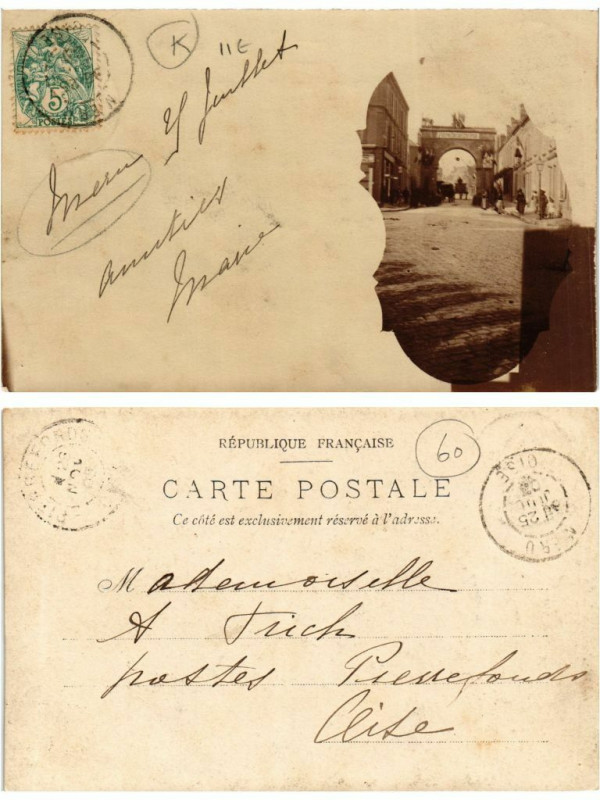 5c
POSTES
K
11E
25 Juillet
Meru
amitiés
Marie
RÉPUBLIQUE FRANÇAISE
60
CARTE POSTALE
Ce côté est exclusivement réservé à l'adresse.
PIERREFONDS
MERU
OISE
25
JUIL
Mademoiselle
A
postes Pierrefonds
Oise